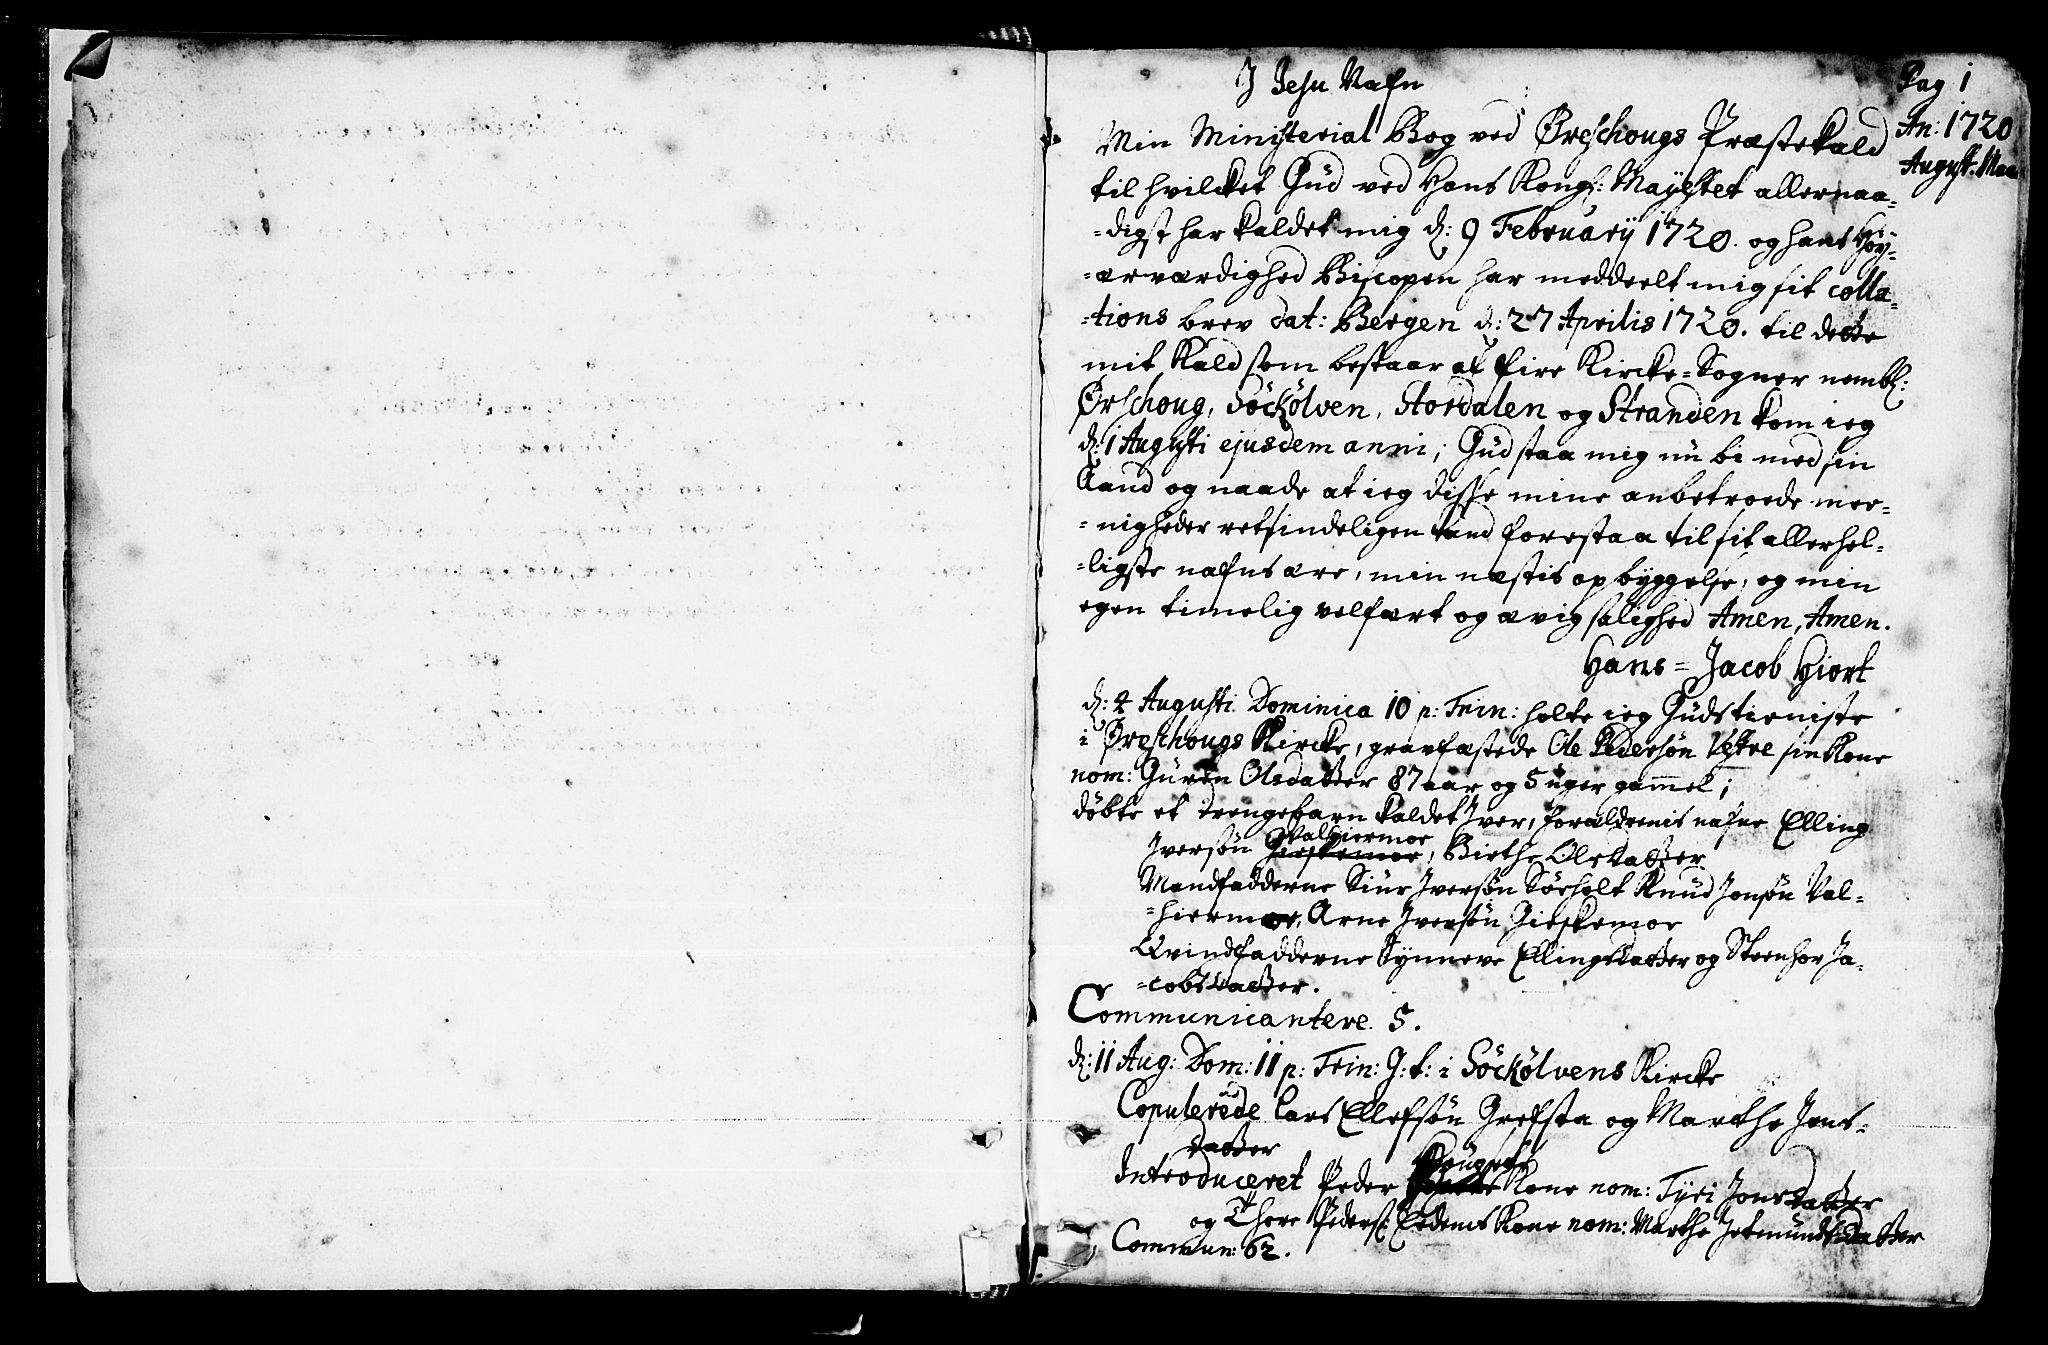 Pag 1
J Jesu Nafn
An: 1720
August. Maa
Min Ministerial Bog ved Ørschougs Præstekald
til hvilcket Gud ved Hans Kongl: Mayestet allernaa-
-digst har kaldet mig d: 9 February 1720. og hans Høy-
-ærværdighed Biscopen har meddeelt mig sit colla-
-tions brev dat: Bergen d: 27 Aprilis 1720. til dette
mit Kald som bestaar af fire Kircke-Sogner nembl:
Ørschoug, Söckölven, Stordalen og Stranden kom ieg
d: 1 Augusti ejusdem anni; Gud staa mig nu bi med sin
Aand og naade at ieg disse mine anbetroede mee-
-nigheder retsindeligen kand forestaa til sit allerhel-
-ligste nafns ære, min næstis opbyggelse, og min
egen timelig velfært og ævig salighed Amen, Amen.
Hans = Jacob Hiort
d: 4 Augusti Dominica 10 p: Trin: holte ieg Gudstieniste
i Ørschougs Kircke, gravfæstede Ole Pedersön Vestre sin Kone
nom: Guren Olsdatter 87 aar og 5 uger gammel;
döbte et drengebarn kaldet Iver, forældrenis nafne Elling
Iversön Valgiermoe Gieskemoe, Birthe Olsdatter
Mandfadderne Siur Iversön Sørholt Knud Jonsön Val-
-hiermoe, Arne Iversön Gieskemoe
Qvindfadderne Synneve Ellingsdatter og Steenhor Ja-
-cobsdatter.
Communicantere 5.
d: 11 Aug: Dom: 11 p: Trin: G: t: i Söckölvens Kircke
Copulerede Lars Ellefsön Grefsta og Marthe Jens-
datter
Introduceret Peder Kone nom: Tyri Jonsdatter
og Thore Peders: Kone nom: Marthe Jetmundsdatter
Commun: 62.